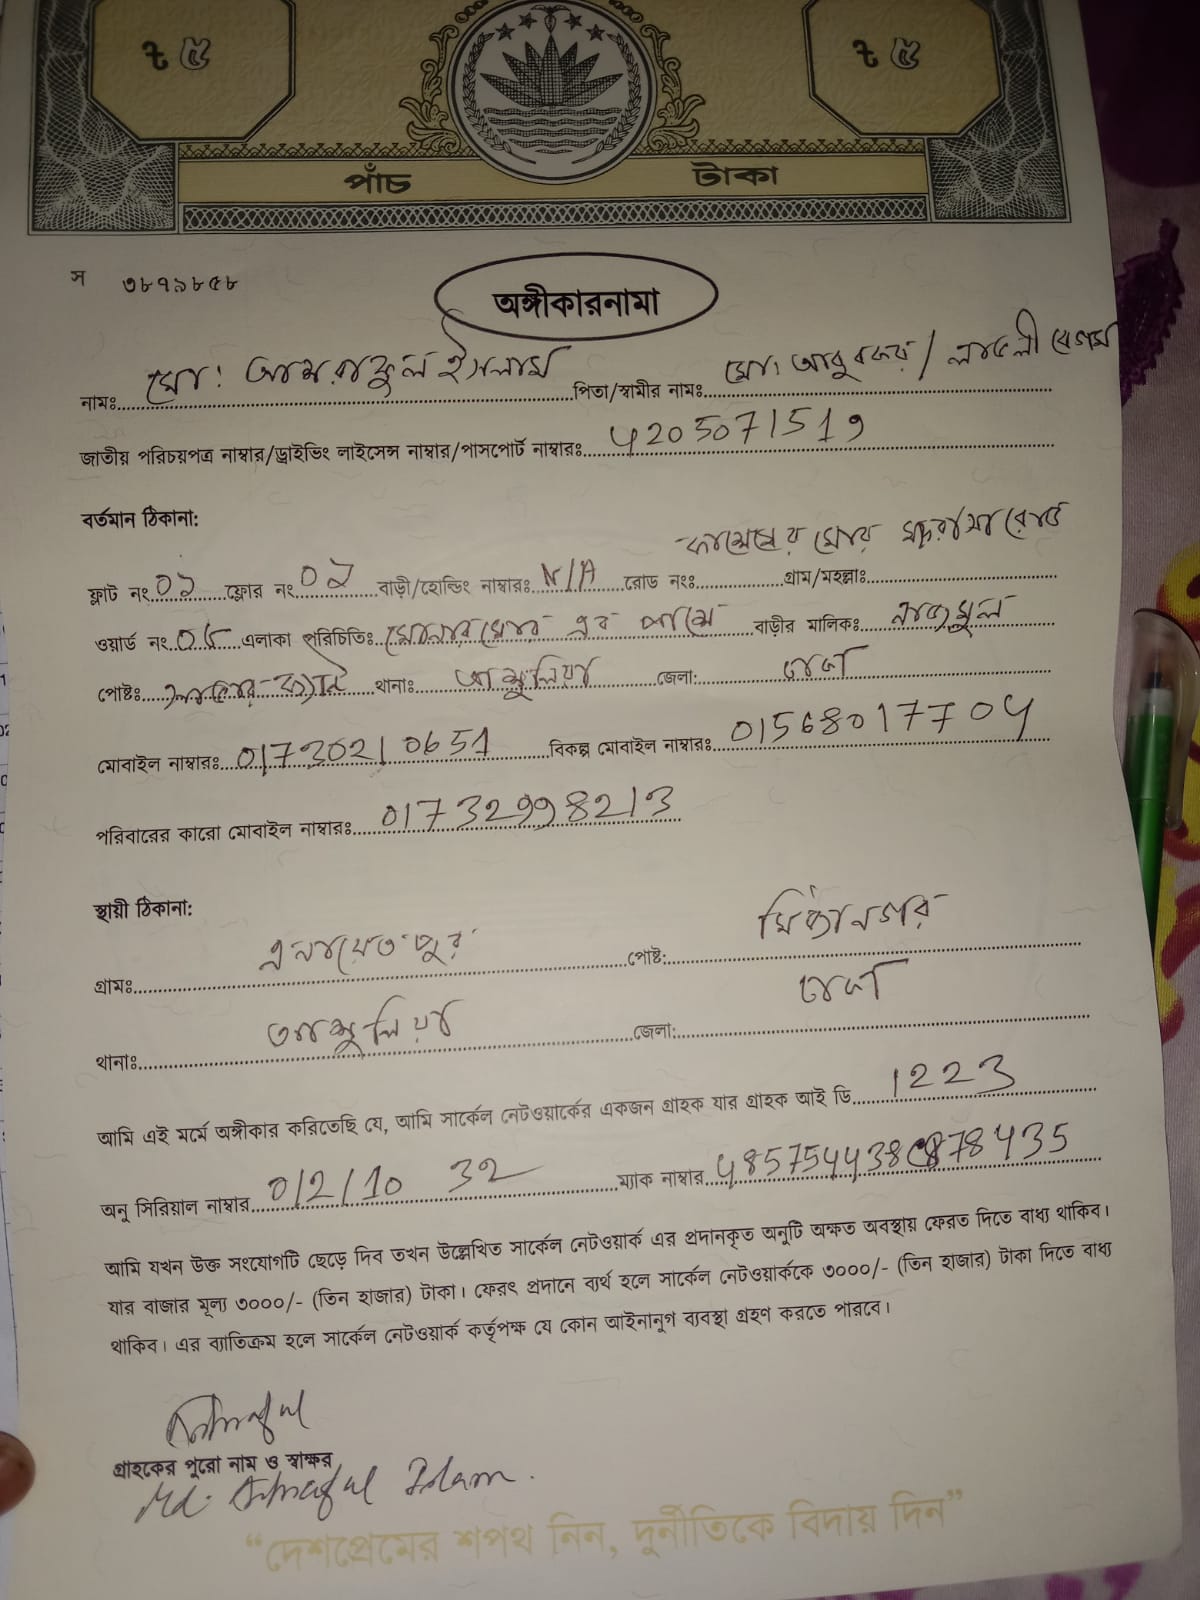 ৳ ৫ ৳ ৫
পাঁচ টাকা
স ৩৮৭৯৮৫৮
অঙ্গীকারনামা
নামঃ মো: ইসলাম পিতা/স্বামীর নামঃ মো: আবুবকর / লাভলী বেগম
জাতীয় পরিচয়পত্র নাম্বার/ড্রাইভিং লাইসেন্স নাম্বার/পাসপোর্ট নাম্বারঃ 4205071519
বর্তমান ঠিকানা:
ফ্লাট নং ০২ ফ্লোর নং ০২ বাড়ী/হোল্ডিং নাম্বারঃ N/A রোড নংঃ গ্রাম/মহল্লাঃ রোড
ওয়ার্ড নং ০৫ এলাকা পরিচিতিঃ এর পাশে বাড়ীর মালিকঃ নাজমুল
পোষ্টঃ থানাঃ আশুলিয়া জেলা: ঢাকা
মোবাইল নাম্বারঃ 01730210651 বিকল্প মোবাইল নাম্বারঃ 01568017704
পরিবারের কারো মোবাইল নাম্বারঃ 01732998213
স্থায়ী ঠিকানা:
গ্রামঃ এনায়েতপুর পোষ্ট: মির্জানগর
থানাঃ আশুলিয়া জেলা: ঢাকা
আমি এই মর্মে অঙ্গীকার করিতেছি যে, আমি সার্কেল নেটওয়ার্কের একজন গ্রাহক যার গ্রাহক আই ডি 1223
অনু সিরিয়াল নাম্বার 012110 32 ম্যাক নাম্বার
আমি যখন উক্ত সংযোগটি ছেড়ে দিব তখন উল্লেখিত সার্কেল নেটওয়ার্ক এর প্রদানকৃত অনুটি অক্ষত অবস্থায় ফেরত দিতে বাধ্য থাকিব।
যার বাজার মূল্য ৩০০০/- (তিন হাজার) টাকা। ফেরৎ প্রদানে ব্যর্থ হলে সার্কেল নেটওয়ার্ককে ৩০০০/- (তিন হাজার) টাকা দিতে বাধ্য
থাকিব। এর ব্যাতিক্রম হলে সার্কেল নেটওয়ার্ক কর্তৃপক্ষ যে কোন আইনানুগ ব্যবস্থা গ্রহণ করতে পারবে।
গ্রাহকের পুরো নাম ও স্বাক্ষর
Md. Islam.
“দেশপ্রেমের শপথ নিন, দুর্নীতিকে বিদায় দিন”